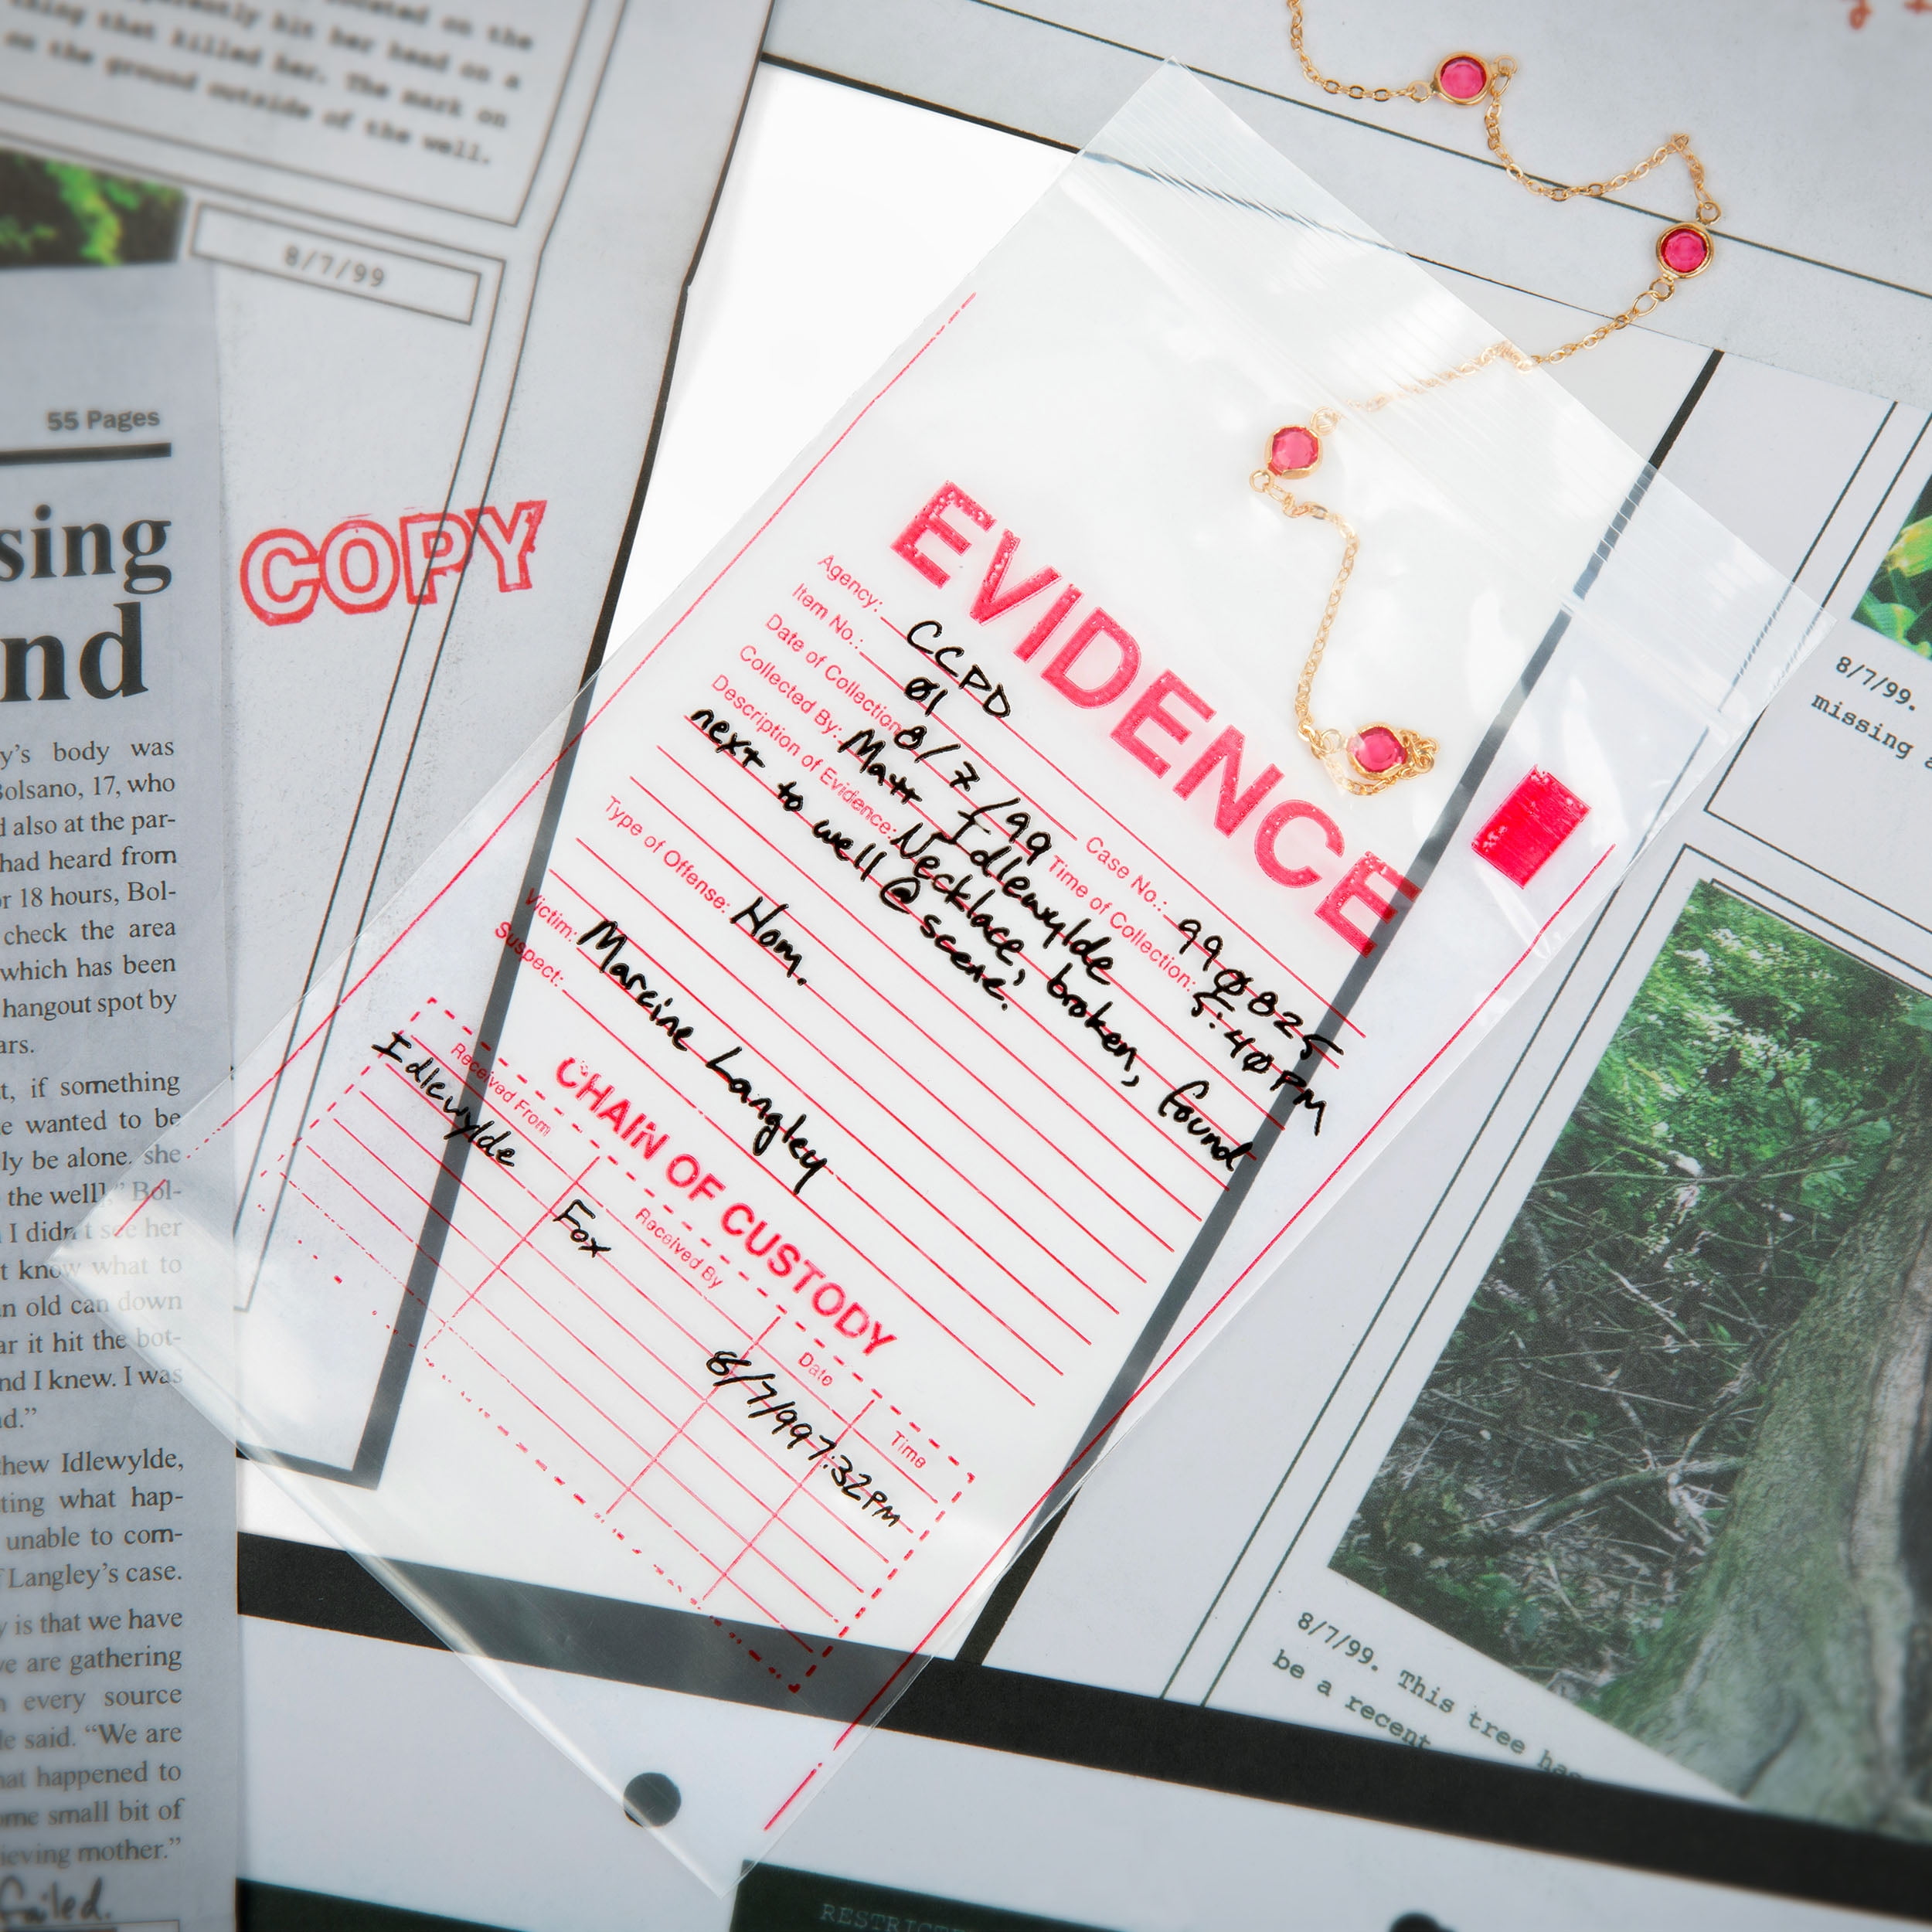 located on the
apparently hit her head on a
thing that killed her. The mark on
on the ground outside of the well.
8/7/99
55 Pages
sing
nd
COPY
y's body was
Bolsano, 17, who
d also at the par-
had heard from
or 18 hours, Bol-
check the area
which has been
hangout spot by
ars.
t, if something
e wanted to be
ly be alone. she
the well]," Bol-
I didn't see her
t know what to
an old can down
ar it hit the bot-
nd I knew. I was
d."
hew Idlewylde,
ting what hap-
unable to com-
Langley's case.
y is that we have
ve are gathering
every source
e said. "We are
hat happened to
ome small bit of
ieving mother."
failed.
EVIDENCE
Agency: CCPD
Item No.: 01 Case No.: 990825
Date of Collection: 8/7/99 Time of Collection: 5:40 PM
Collected By: Matt Idlewylde
Description of Evidence: Necklace, broken, found
next to well @ scene.
Type of Offense: Hom.
Victim: Marcine Langley
Suspect:
CHAIN OF CUSTODY
Received From Received By Date Time
Idlewylde Fox 8/7/99 7:32PM
8/7/99.
missing a
8/7/99. This tree has
be a recent
RESTRICTE